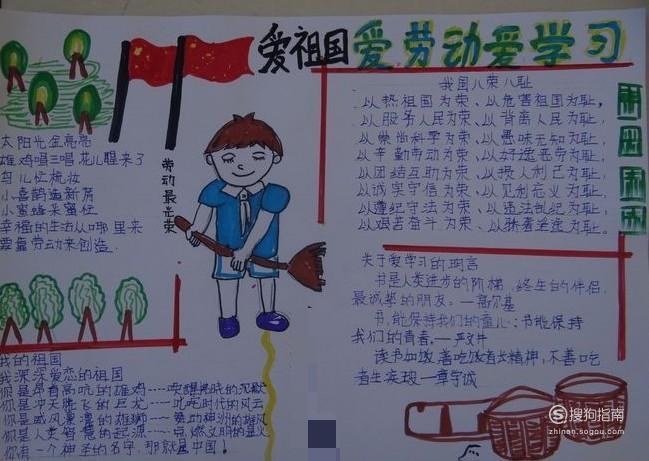 爱祖国爱劳动爱学习
太阳光金亮亮
雄鸡唱三唱花儿醒来了
鸟儿忙梳妆
小喜鹊造新房
小蜜蜂采蜜忙
幸福的生活从哪里来
要靠劳动来创造
劳动最光荣
我国八荣八耻
以热祖国为荣、以危害祖国为耻,
以服务人民为荣、以背离人民为耻,
以崇尚科学为荣、以愚昧无知为耻,
以辛勤劳动为荣、以好逸恶劳为耻,
以团结互助为荣、以损人利己为耻,
以诚实守信为荣、以见利忘义为耻,
以遵纪守法为荣、以违法乱纪为耻,
以艰苦奋斗为荣、以骄奢淫逸为耻.
关于爱学习的名言
书是人类进步的阶梯,终生的伴侣,
最诚挚的朋友.—高尔基
书,能保持我们的童心;书能保持
我们的青春.—严文井
读书加饭,善吃饭者长精神,不善吃
者生疾病—章学诚
我的祖国
我深深爱恋的祖国
你是昂首高吭的雄鸡----唤醒拂晓的沉默
你是冲天腾飞的巨龙----叱咤时代的风云
你是威风凛凛的雄狮----舞动神州的雄风
你是人类智慧的起源----点燃文明的星火
你有一个神圣的名字,那就是中国!
搜狗指南
zhinan.sogou.com